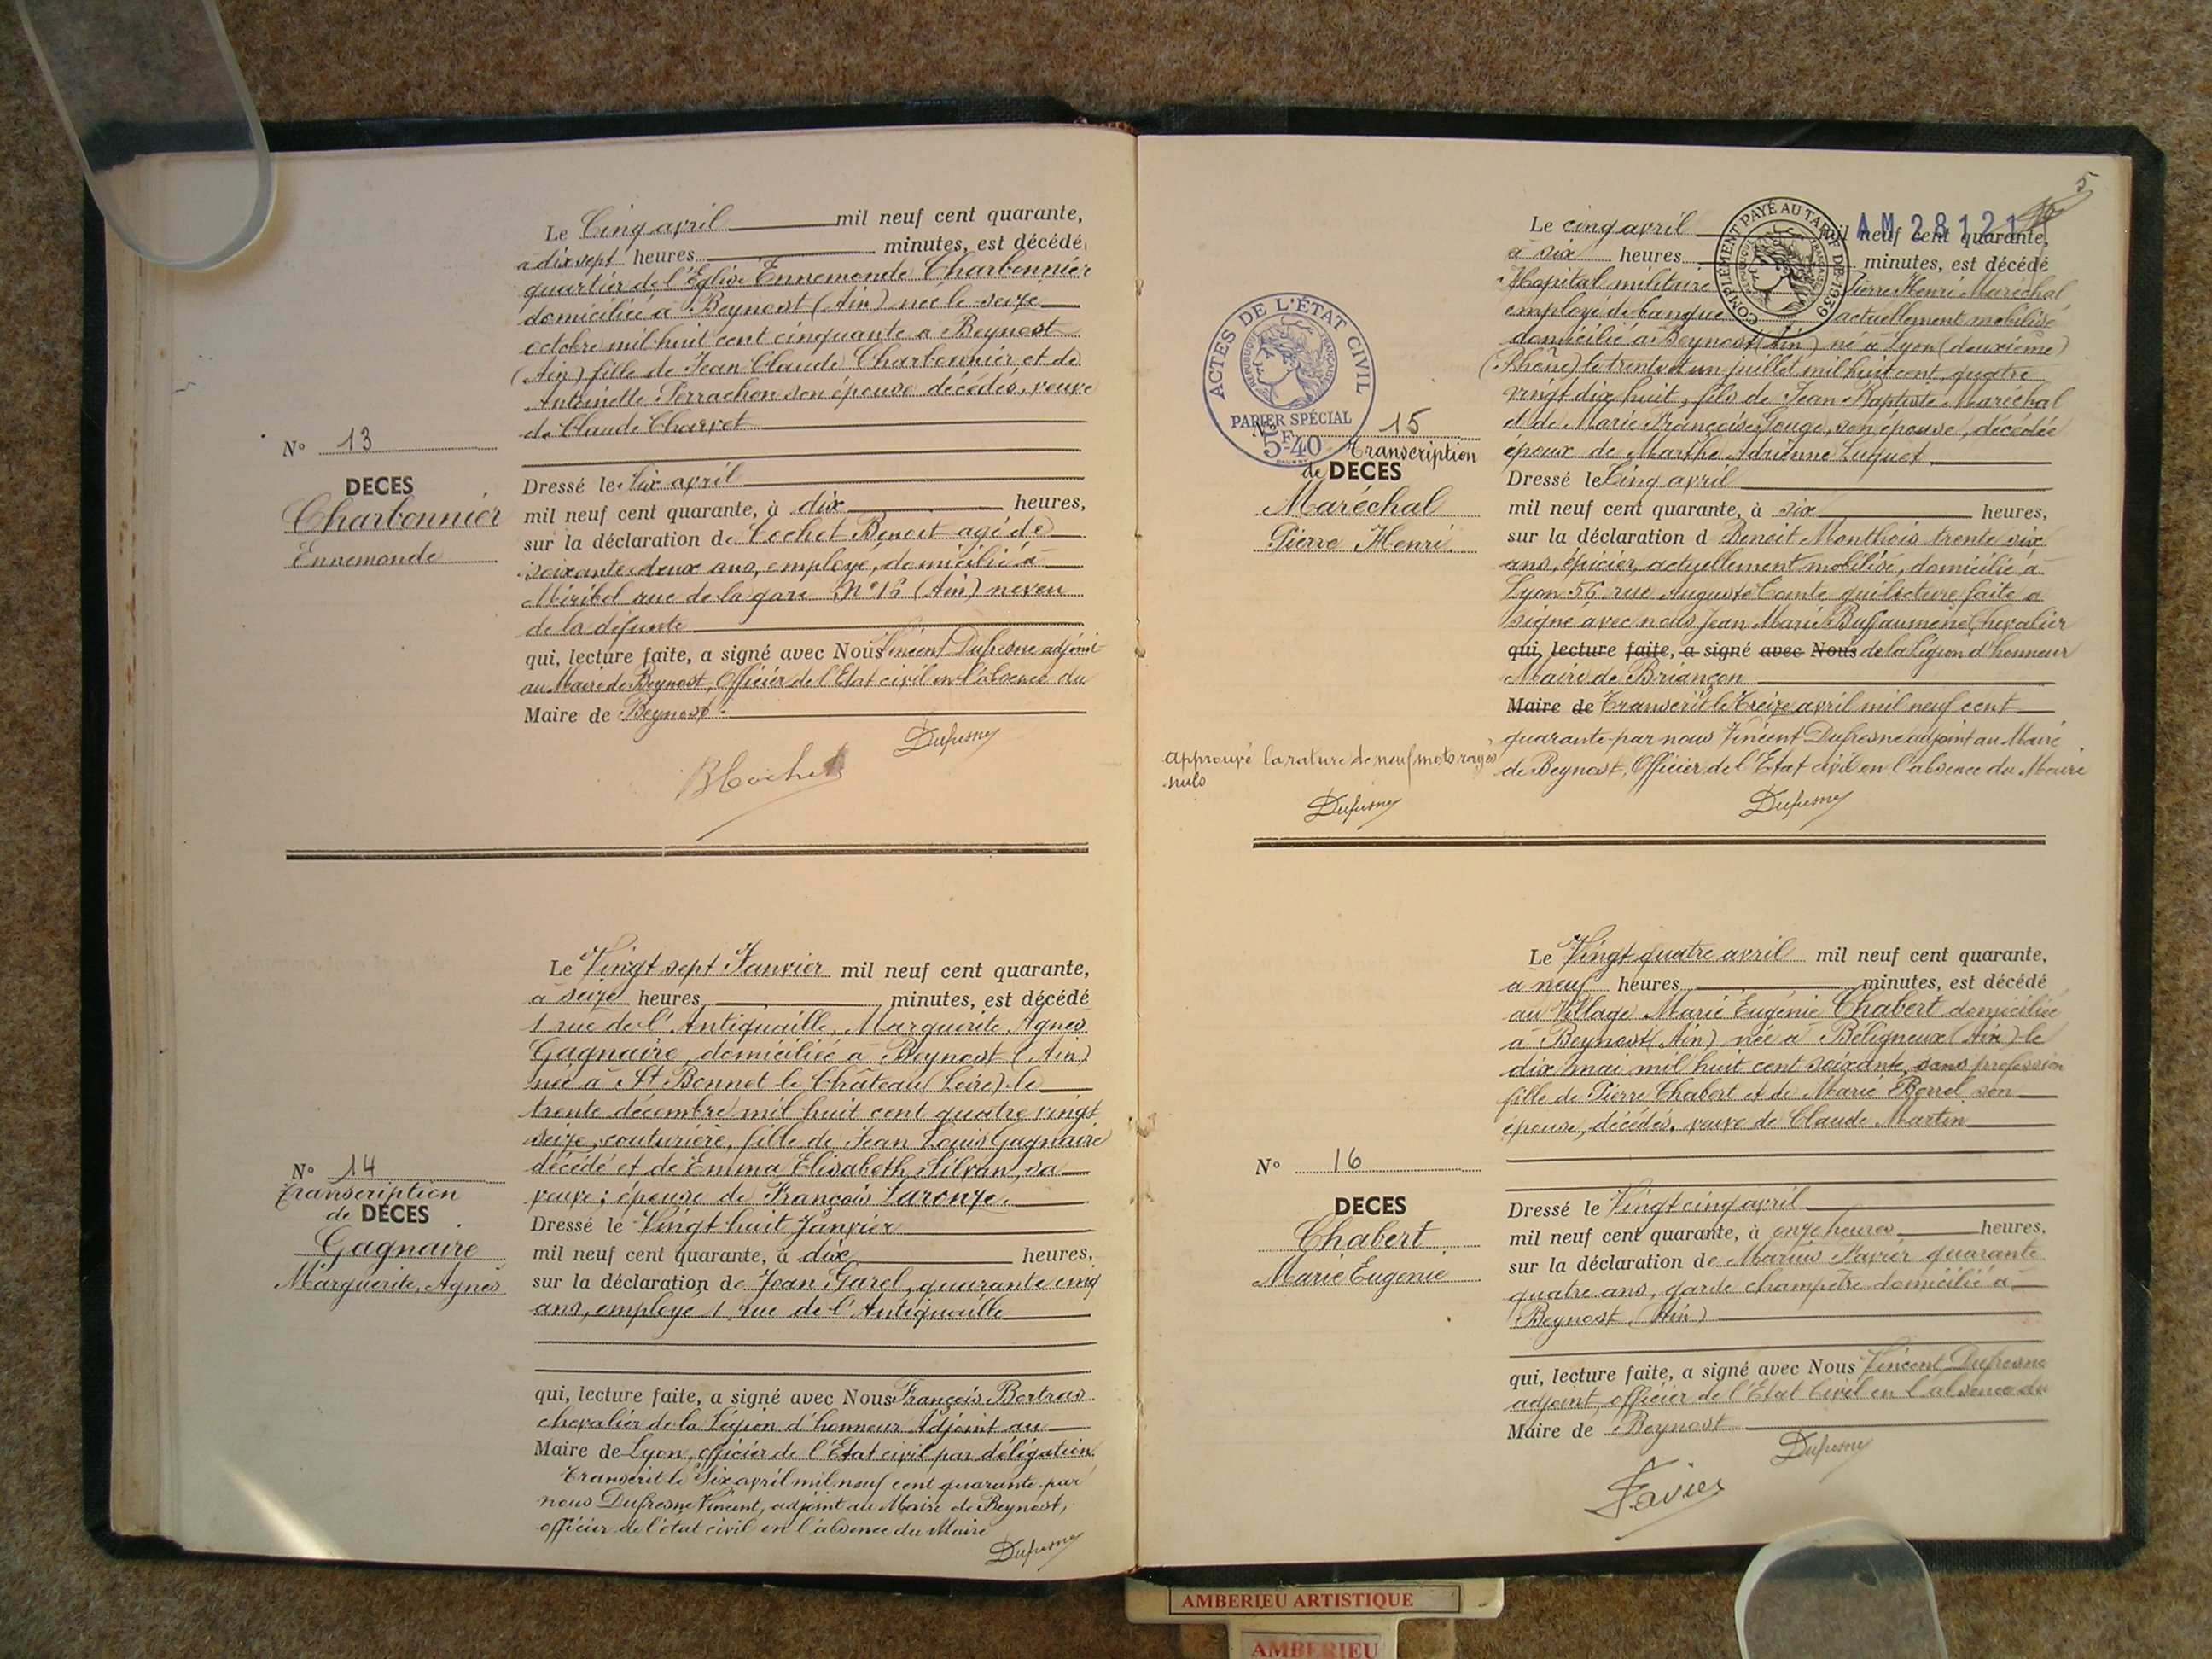 Le Cinq avril mil neuf cent quarante,
à dix sept heures minutes, est décédé
quartier de l'Eglise Ennemonde Charbonnier
domiciliée à Beynost (Ain) née le seize
octobre mil huit cent cinquante à Beynost
(Ain) fille de Jean Claude Charbonnier et de
Antoinette Perrachon son épouse décédés, veuve
de Claude Charvet
N° 13
DECES
Charbonnier
Ennemonde
Dressé le Six avril
mil neuf cent quarante, à dix heures,
sur la déclaration de Cochet Benoit agé de
soixante deux ans, employé, domicilié à
Miribel rue de la gare N° 16 (Ain) neveu
de la défunte
qui, lecture faite, a signé avec Nous Vincent Dufresne adjoint
au Maire de Beynost, Officier de l'Etat civil en l'absence du
Maire de Beynost.
Dufresne
BCochet
Le Vingt sept Janvier mil neuf cent quarante,
à seize heures minutes, est décédé
1 rue de l'Antiquaille, Marguerite Agnès
Gagnaire, domiciliée à Beynost (Ain)
née à St Bonnet le Château (Loire) le
trente décembre mil huit cent quatre vingt
seize, couturière, fille de Jean Louis Gagnaire
décédé et de Emma Elisabeth Silvan, sa
veuve; épouse de François Laronze.
N° 14
Transcription
de DECES
Gagnaire
Marguerite, Agnès
Dressé le Vingt huit Janvier
mil neuf cent quarante, à dix heures,
sur la déclaration de Jean Garel, quarante cinq
ans, employé 1, rue de l'Antiquaille
qui, lecture faite, a signé avec Nous François Bertras
chevalier de la Légion d'honneur Adjoint au
Maire de Lyon, officier de l'Etat civil par délégation.
Transcrit le Six avril mil neuf cent quarante par
nous Dufresne Vincent, adjoint au Maire de Beynost,
officier de l'état civil en l'absence du Maire
Dufresne
5
AM 28121
COMPLÉMENT PAYÉ AU TARIF DE 1939
Le cinq avril mil neuf cent quarante,
à six heures minutes, est décédé
Hôpital militaire Pierre Henri Maréchal
employé de banque actuellement mobilisé
domicilié à Beynost (Ain) né à Lyon (deuxième)
(Rhône) le trente et un juillet mil huit cent quatre
vingt dix huit, fils de Jean Baptiste Maréchal
et de Marie Françoise Gouge, son épouse, décédée
époux de Marthe Adrienne Luquet
ACTES DE L'ÉTAT CIVIL
RÉPUBLIQUE FRANÇAISE
PAPIER SPÉCIAL
5F40
N° 15
Transcription
de DECES
Maréchal
Pierre Henri
Dressé le Cinq avril
mil neuf cent quarante, à six heures,
sur la déclaration d Benoit Monthois trente six
ans, épicier, actuellement mobilisé, domicilié à
Lyon 56 rue Auguste Comte, qui lecture faite a
signé avec nous Jean Marie Chevalier
qui, lecture faite, a signé avec Nous de la Légion d'honneur
Maire de Briançon
Maire de Transcrit le Treize avril mil neuf cent
quarante par nous Vincent Dufresne adjoint au Maire
de Beynost, Officier de l'Etat civil en l'absence du Maire
approuvé la rature de neuf mots rayés
nuls
Dufresne
Dufresne
Le Vingt quatre avril mil neuf cent quarante,
à neuf heures minutes, est décédé
au Village Marie Eugénie Chabert domiciliée
à Beynost (Ain) née à Béligneux (Ain) le
dix mai mil huit cent soixante, sans profession
fille de Pierre Chabert et de Marie Borrel son
épouse, décédés. veuve de Claude Martin
N° 16
DECES
Chabert
Marie Eugénie
Dressé le Vingt cinq avril
mil neuf cent quarante, à onze heures heures.
sur la déclaration de Marius Favier quarante
quatre ans, garde champêtre domicilié à
Beynost (Ain)
qui, lecture faite, a signé avec Nous Vincent Dufresne
adjoint, officier de l'Etat Civil en l'absence du
Maire de Beynost
Dufresne
Favier
AMBERIEU ARTISTIQUE
AMBERIEU